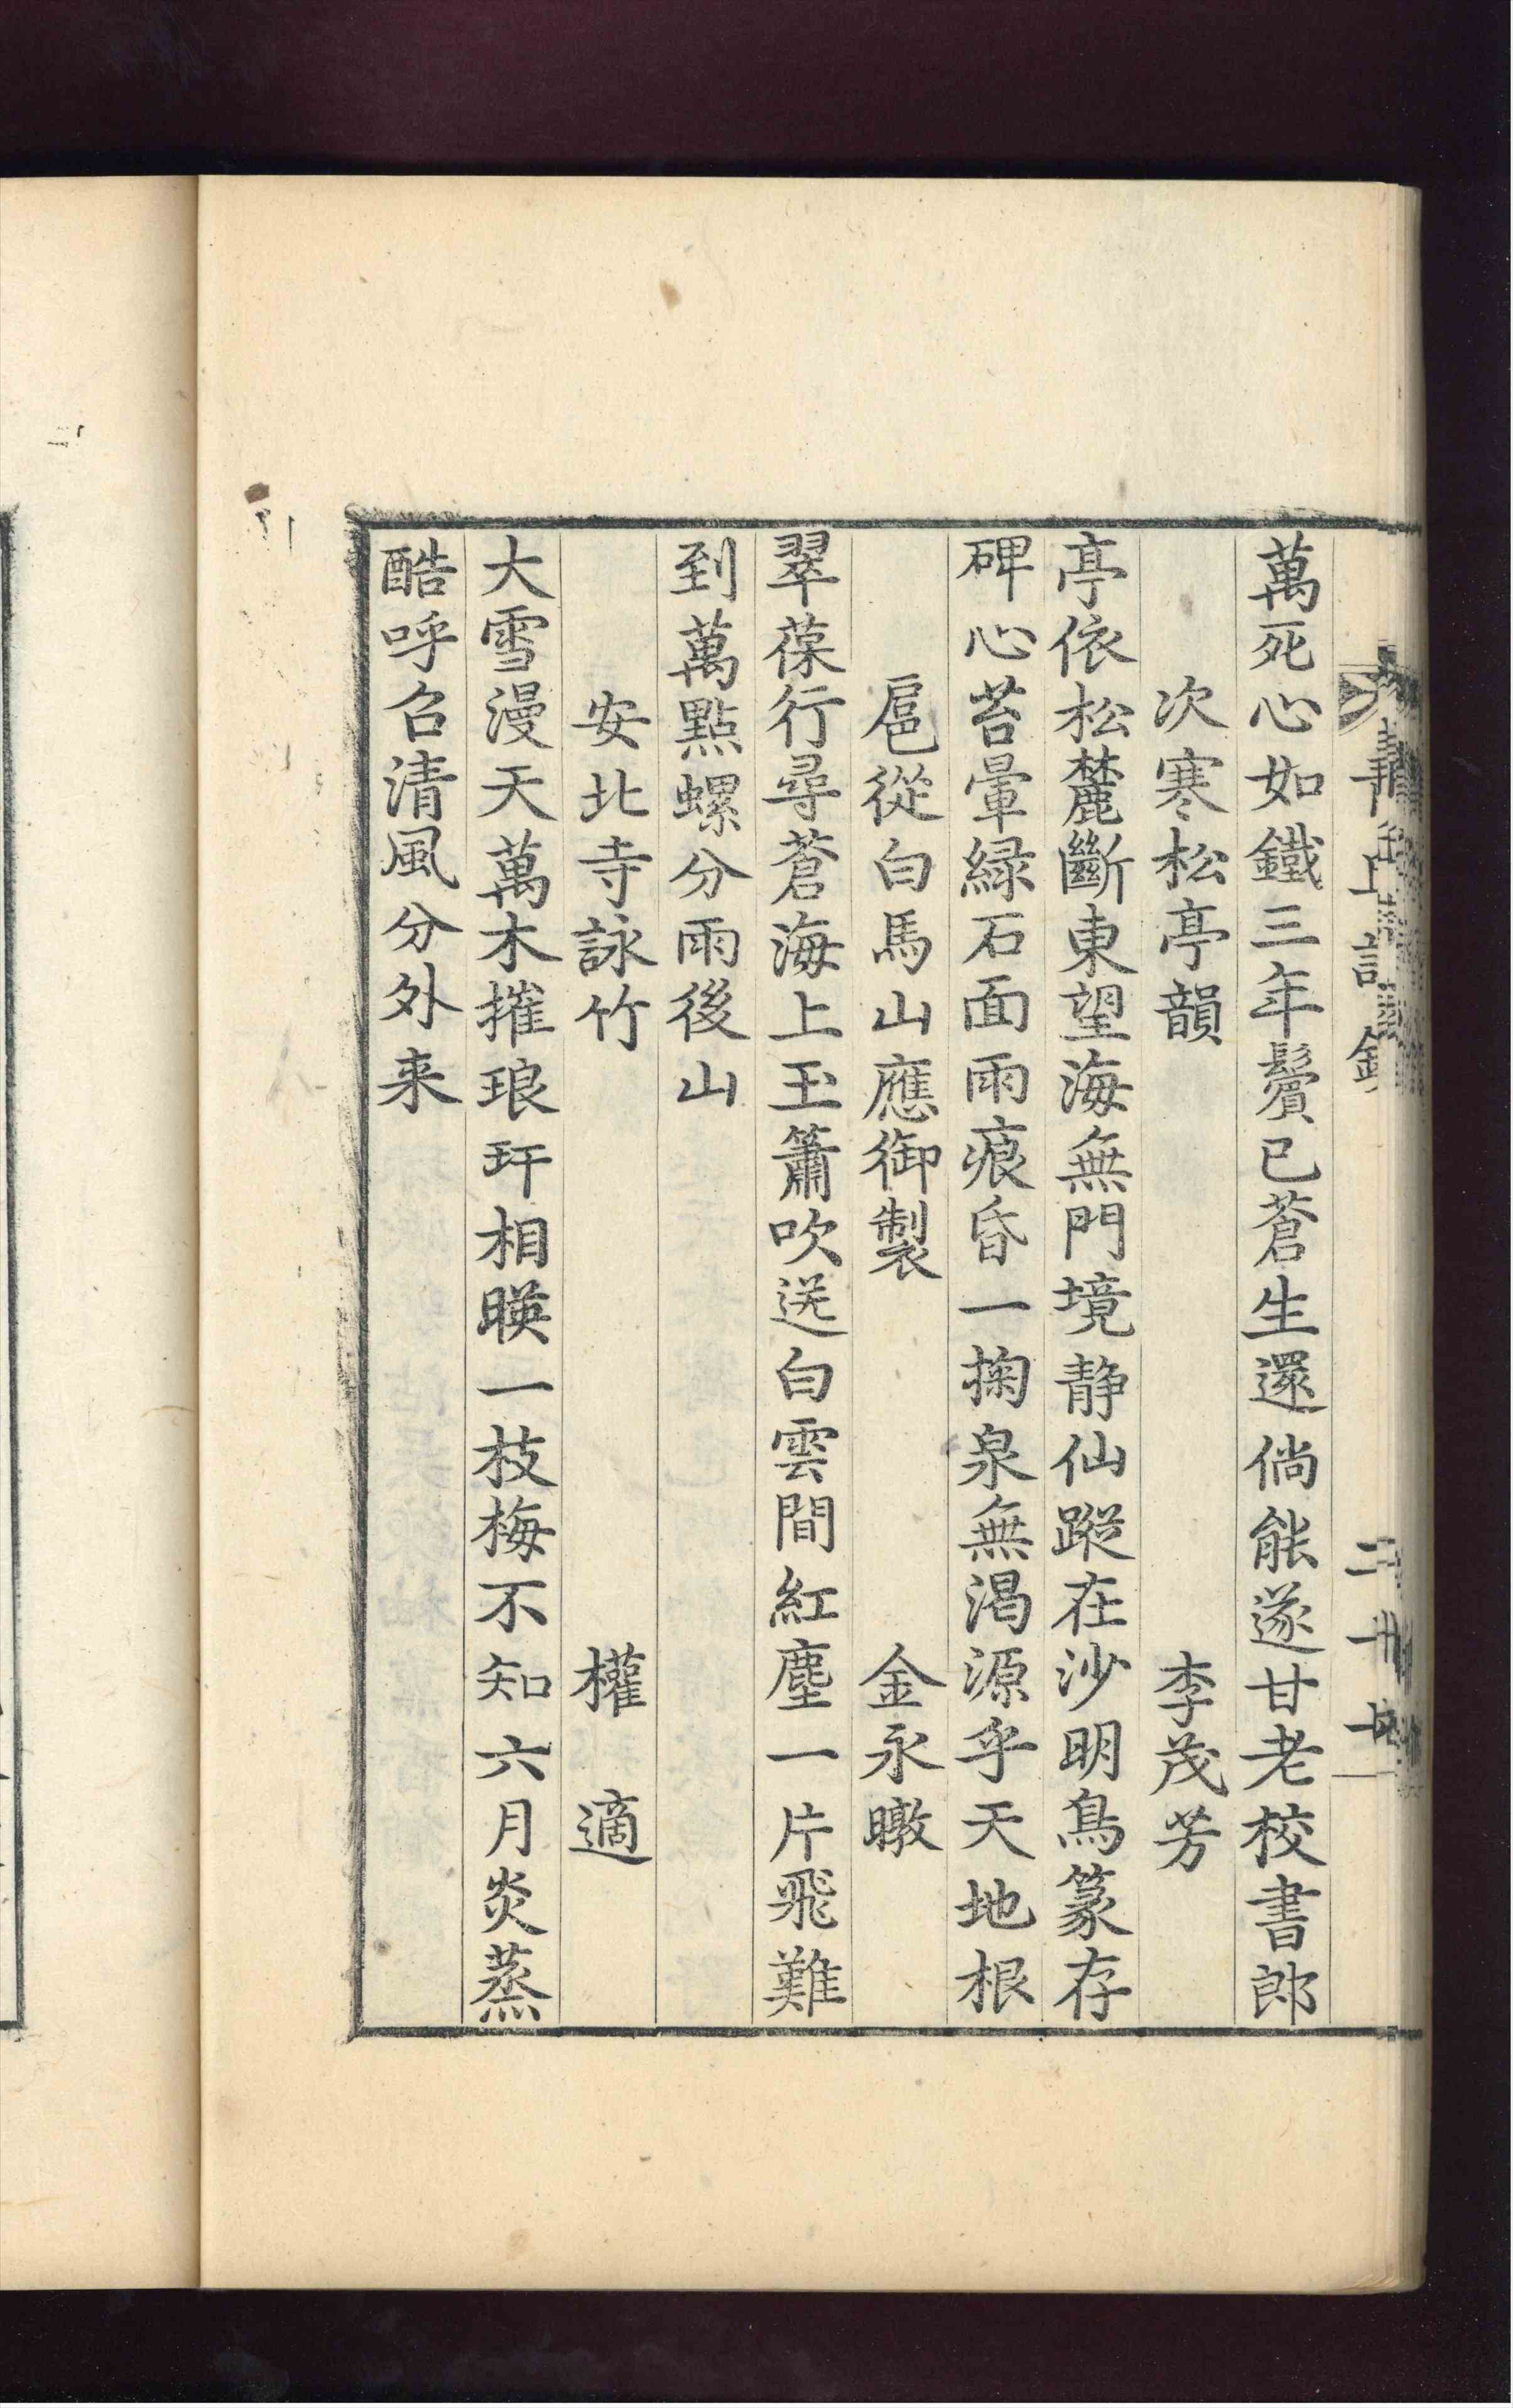 萬死心如鐵三年鬢已蒼生還倘能遂甘老校書郎
次寒松亭韻 李茂芳
亭依松麓斷東望海無門境静仙蹤在沙明鳥篆存
碑心苔暈緑石面雨痕昏一掬泉無渴源乎天地根
扈從白馬山應御製 金永暾
翠葆行尋蒼海上玉簫吹送白雲間紅塵一片飛難
到萬點螺分雨後山
安北寺詠竹 權適
大雪漫天萬木摧琅玕相暎一枝梅不知六月炎蒸
酷呼召清風分外来